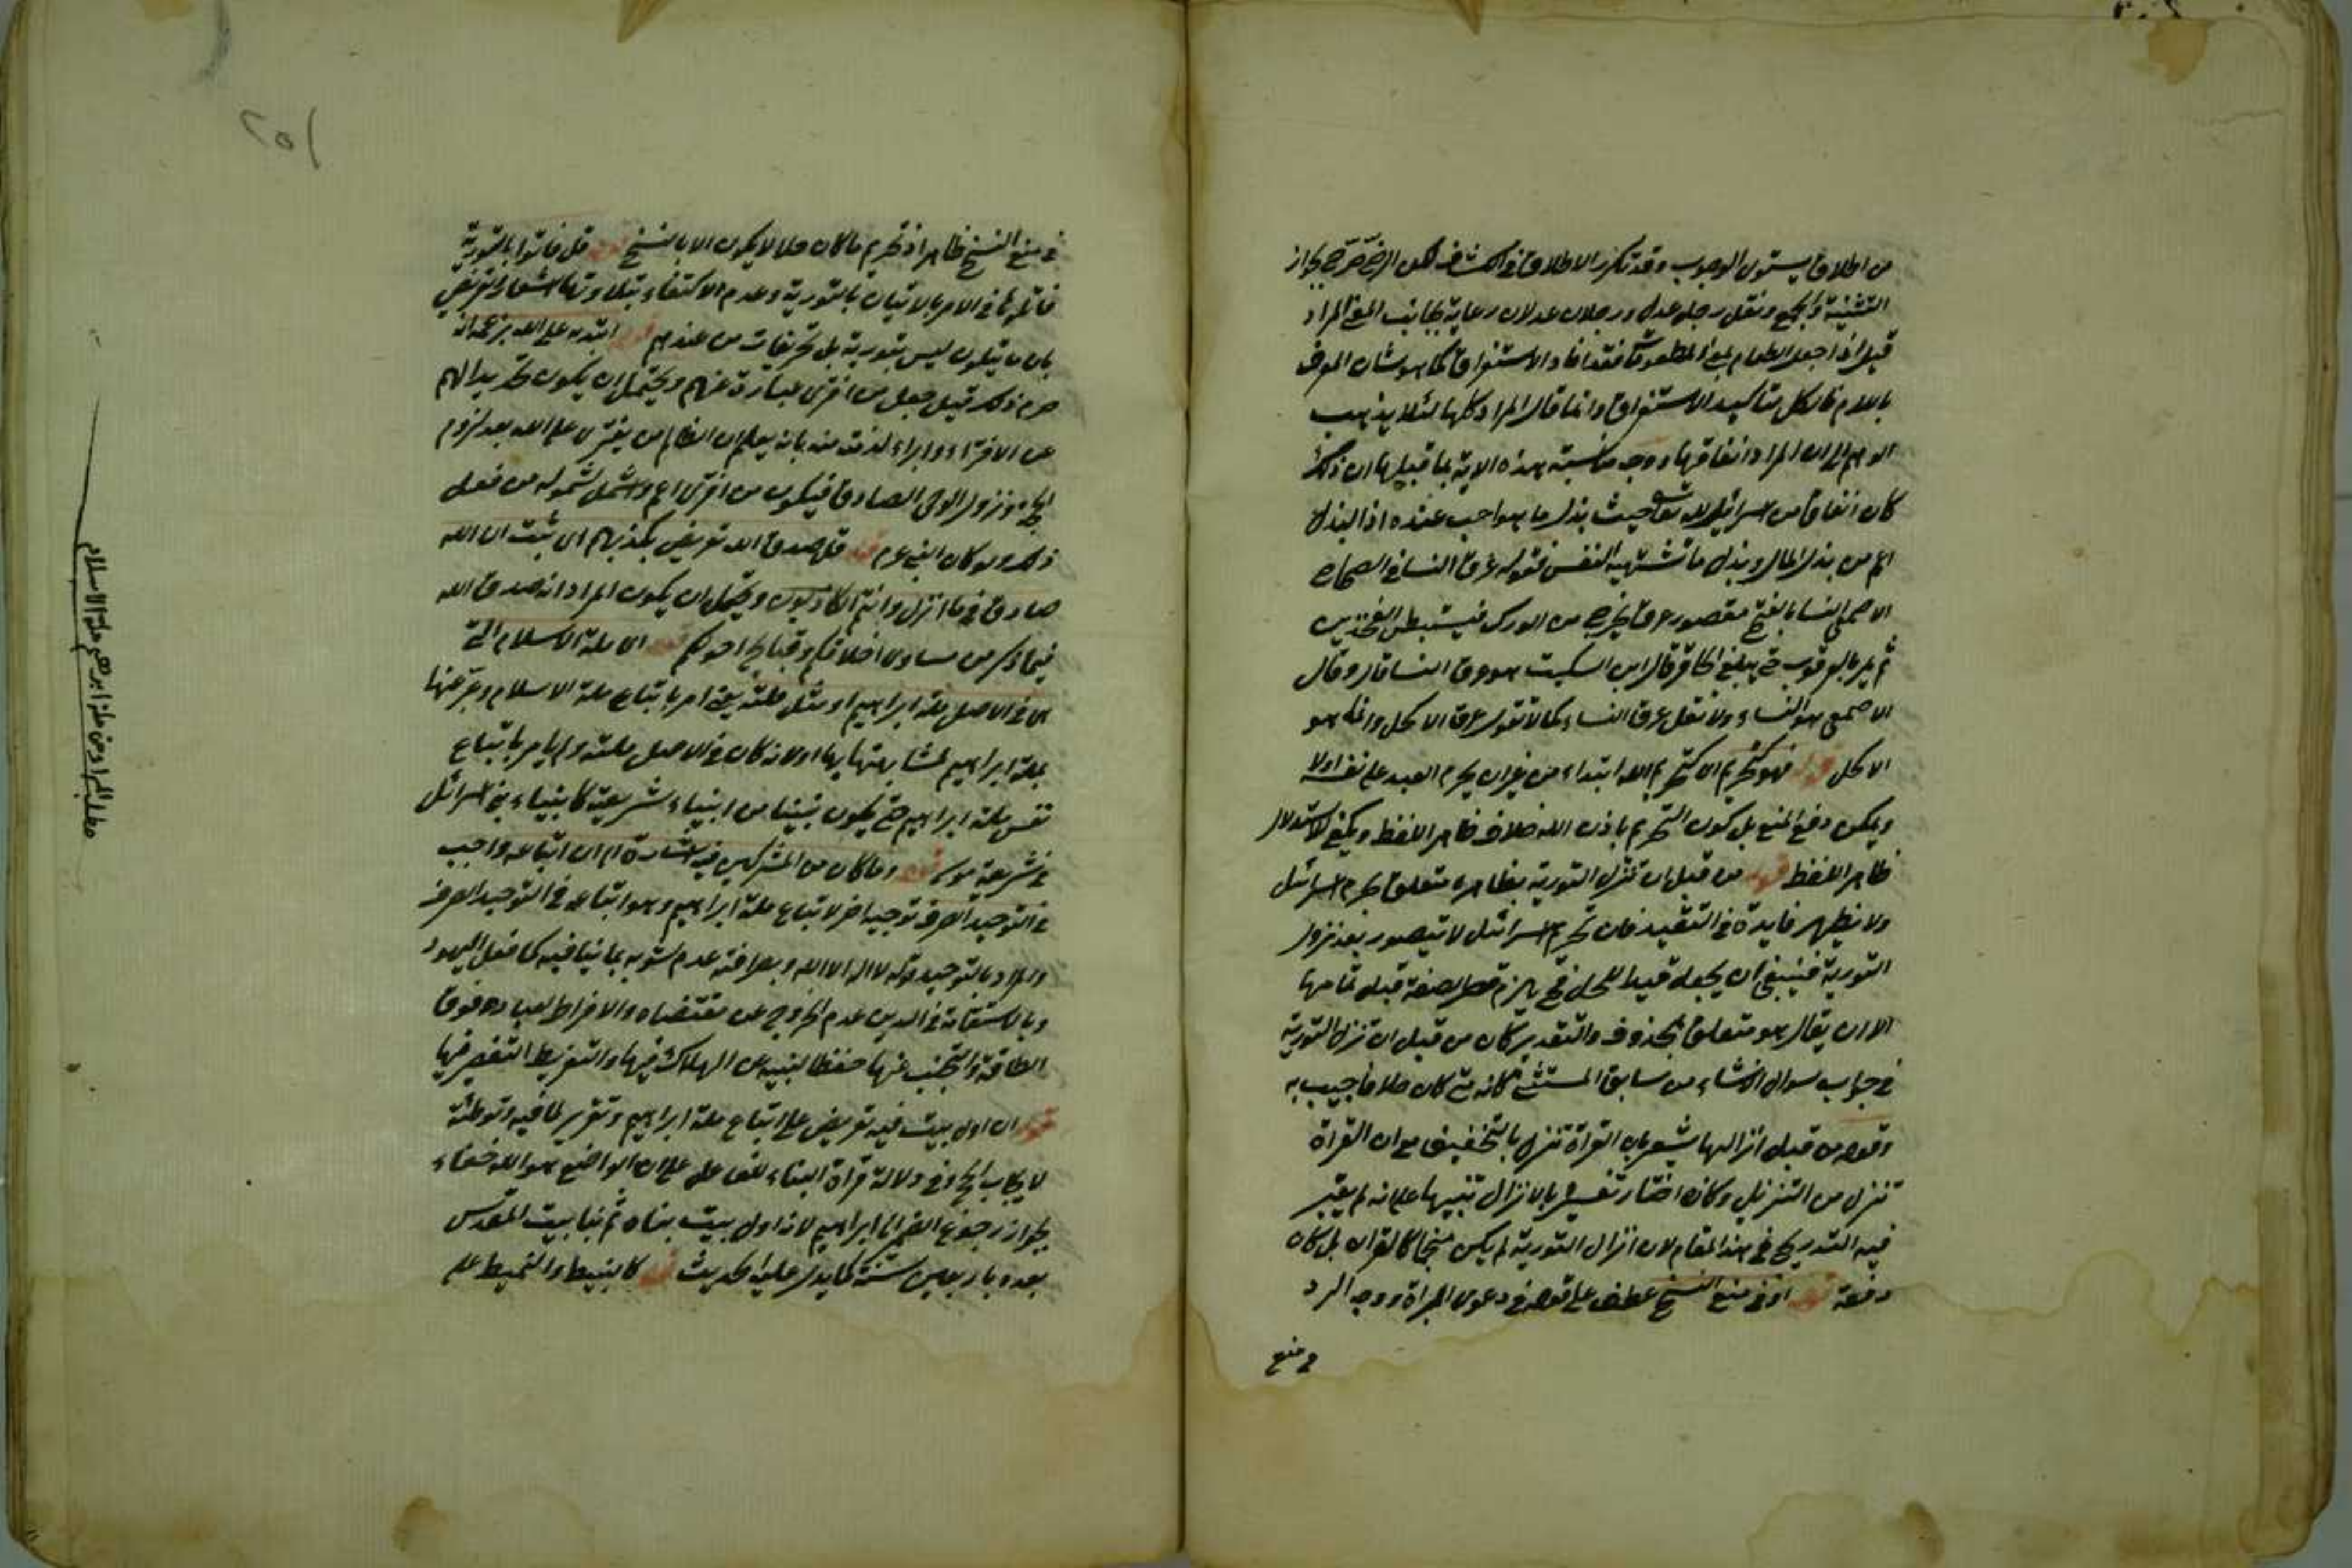 من اطلاق يستوي الوجوب وقد تكرر الاطلاق في الكشاف لكن الرضي صرح بجواز
التثنية والجمع ونقل رجل عدل ورجلان عدلان رعاية لجانب المعنى المراد
قيل اذا جعل الطعام بمعنى المطعوم فقد افاد الاستغراق كما هو شان المعرف
باللام فالكل تاكيد الاستغراق وانما قال المراد كلها لئلا يذهب
الوهم الى ان المراد انفاقها ووجه مناسبته هذه الاية بما قبلها ان ذلك
كان انفاق من اسرائيل لله تعالى حيث بذل ما هو احب عنده اذ البذل
اعم من بذل المال وبذل ما تشتهيه النفس فقوله عرق النسا في الصحاح
الاصمعي النسا بالفتح مقصور عرق يخرج من الورك فيستبطن الفخذين
ثم يمر بالعرقوب حتى يبلغ الحافر قال ابن السكيت هو عرق النسا قال وقال
الاصمعي هو النسا ولا تقل عرق النساء كما لا تقول عرق الاكحل وانما هو
الاكحل قوله فهو كتحريم اى كتحريم الله ابتداء من غير ان يحرم العبد على نفسه اولا
ويمكن دفع المنع بل كون التحريم باذن الله خلاف ظاهر اللفظ ويكفي للاستدلال
ظاهر اللفظ قوله من قبل ان تنزل التورية بظاهره متعلق بحرم اسرائيل
ولا يظهر فايدة في التقييد فان تحريم اسرائيل لا يتصور بعد نزول
التورية فينبغي ان يجعل قيدا للحل فح يلزم قصر الصفة قبل تمامها
الا ان يقال هو متعلق بمحذوف والتقدير كان من قبل ان تنزل التورية
في جواب سوال ناشاء من سابق المستثنى كانه متى كان حلا فاجيب به
وقوله من قبل انزالها يشعر بان القراة تنزل بالتخفيف مع ان القراة
تنزل من التنزيل وكانه اختار تفسيره بالانزال تنبيها على انه لم يعتبر
فيه التدريج في هذا المقام لان انزال التورية لم يكن منجما كالقران بل كان
دفعة قوله او في منع النسخ عطف على قوله في دعوى البراة ووجه الرد
في منع
في منع النسخ ظاهر اذ تحريم ما كان حلالا لا يكون الا بالنسخ قوله قل فاتوا بالتورية
فاتلوها في الامر بالاتيان بالتورية وعدم الاكتفاء بتلاوتها اشعار وتعريض
بان ما يتلون ليس بتورية بل تحريفات من عندهم قوله ابتدعه على الله بزعمه انه
حرم ذلك قيل جعل من افترى عبارة عنهم ويحتمل ان يكون تحديدا لهم
عن الافتراء وابراء لذمته منه بانه يعلم ان الظالم من يفترى على الله بعد لزوم
الحجة ونزول الوحي الصادق فيكون من افترى اعم واشمل لشموله من فعل
ذلك ولو كان النبي عم قوله قل صدق الله تعريض بكذبهم اى ثبت ان الله
صادق فيما انزل وانتم الكاذبون ويحتمل ان يكون المراد انه صدق الله
فيما ذكر من مساوى اخلاقكم وقبايح احوالكم قوله اى ملة الاسلام التي
هي في الاصل ملة ابراهيم او مثل ملته يعني امر باتباع ملة الاسلام وعبر عنها
بملة ابراهيم لمشابهتها بها او لانه كان في الاصل ملته ولم يامر باتباع
نفس ملة ابراهيم حتى يكون نبينا من انبياء شريعته كانبياء بني اسرائيل
في شريعة موسى قوله وما كان من المشركين فيه اشارة الى ان اتباعه واجب
في التوحيد الصرف توجيه اخر لاتباع ملة ابراهيم وهو اتباعه في التوحيد الصرف
والمراد بالتوحيد قوله لا اله الا الله وبصرافته عدم شوبه بما ينافيه كما فعل اليهود
وبالاستقامة في الدين عدم الخروج عن مقتضاه والافراط العبادة فوق
الطاقة والتجنب عنها حفظا لنبيه عن الهلاك فيها والتفريط التقصير فيها
قوله ان اول بيت فيه تعريض على اتباع ملة ابراهيم وتقرير لما فيه وتوطئة
لايجاب الحج وفي دلالة قراة البناء للفاعل على ان الواضع هو الله خفاء
لجواز رجوع الضمير الى ابراهيم لانه اول بيت بناه ثم بنا بيت المقدس
بعده باربعين سنة كما يدل عليه الحديث قوله كالنبيط والنميط علم
مطلب المراد من ملة ابراهيم ملة الاسلام